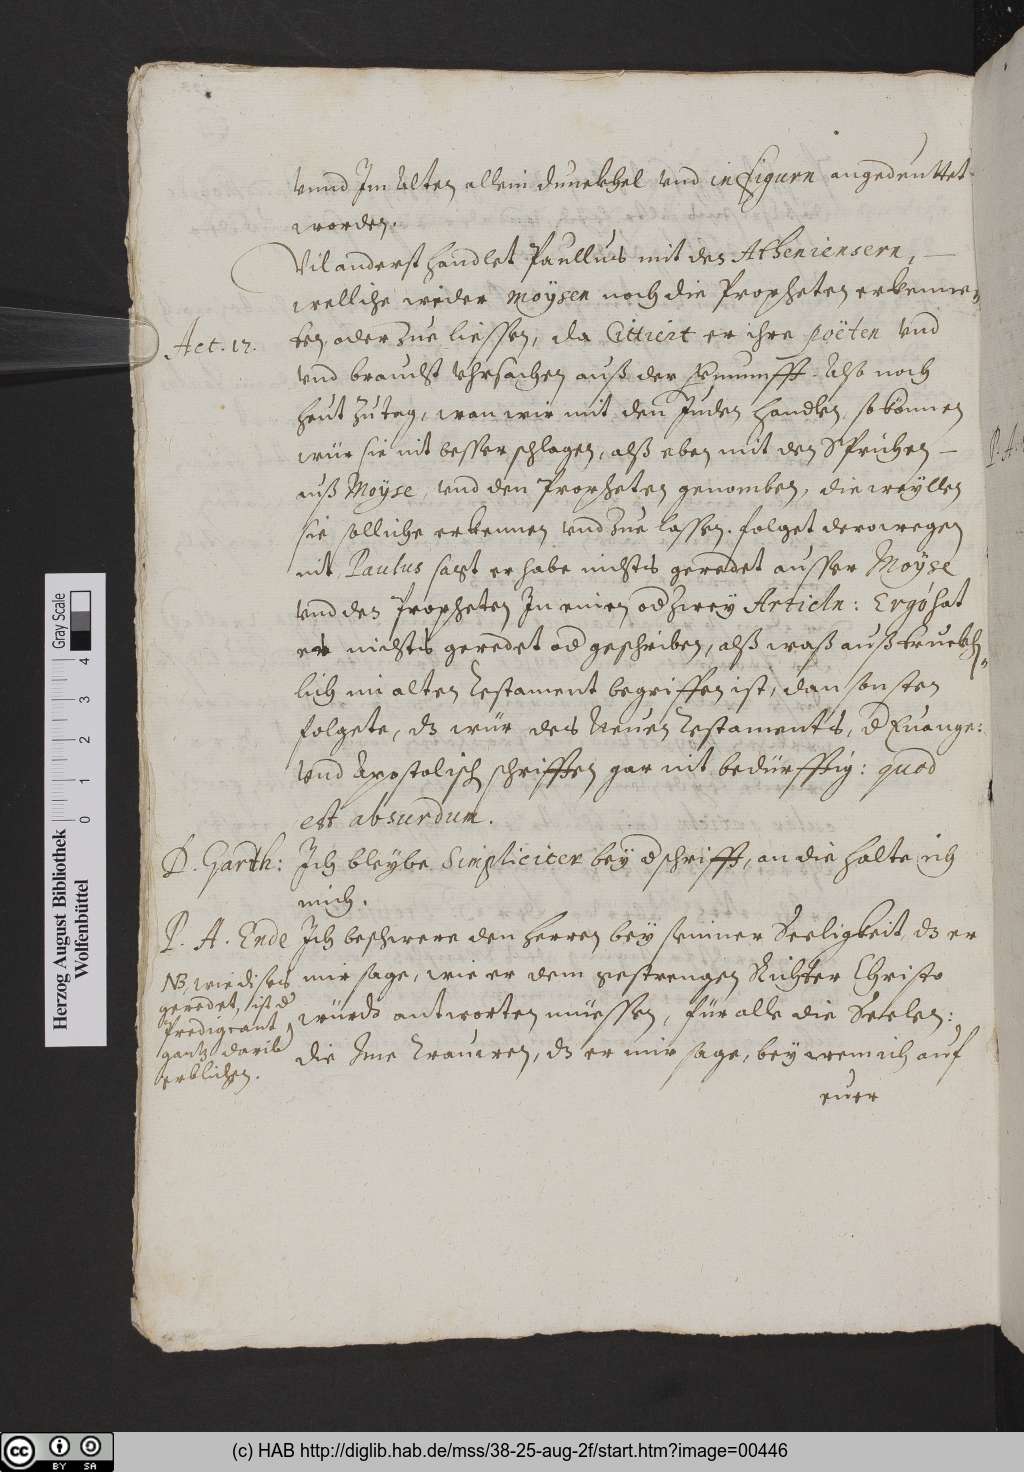 vnnd Im Alten allein dunckhel vnd in Figurn angedeuttet
worden.
Vil anderst handlet Paullus mit den Atheniensern, —
Act. 17.
welliche weder Moÿsen noch die Propheten erkenne„
ten oder zue liessen, da Cittiert er ihre Poëten vnd
vnd braucht vhrsachen auß der vernunfft. Also noch
heut zu tag, wan wir mit den Juden handlen, so können
wür sie nit besser schlagen, alß eben mit den Sprüchen —
auß Moÿse, vnd den Propheten genomben, die weyllen
sie solliche erkennen vnd zue lassen. folget derowegen
nit, Paulus sagt er habe nichts geredet ausser Moÿse
vnd den Propheten In einen od zwey Articln: Ergò hat
er nichts geredet od geschriben, alß waß außtruckh„
lich im alten Testament begriffen ist, dan sonsten
folgete, dz wür des Neuen Testaments, d Euange:
vnd Apostolisch schrifften gar nit bedürfftig: quod
est absurdum.
D. Garth: Ich bleybe Simpliciter bey d schrifft, an die halte ich
mich.
P. A. Ende Ich beschwere den herren bey seiner Seeligkeit, dz er
mir sage, wie er dem gestrengen Richter Christo
würdt antworten müessen, für alle die Seelen:
die Ime trauwen, dz er mir sage, bey wem ich auf
NB, wie dises
geredet, ist d
Predigcant
gantz darüb
erblichen.
euer
P. A.
Herzog August Bibliothek
Wolfenbüttel
0 1 2 3 4
Gray Scale
CC BY SA
(c) HAB http://diglib.hab.de/mss/38-25-aug-2f/start.htm?image=00446